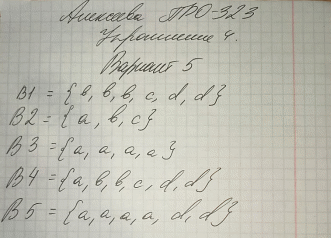 Алексеева ПРО-323
Упражнение 4.
Вариант 5
B1 = {b, b, b, c, d, d}
B2 = {a, b, c}
B3 = {a, a, a, a}
B4 = {a, b, b, c, d, d}
B5 = {a, a, a, a, d, d}